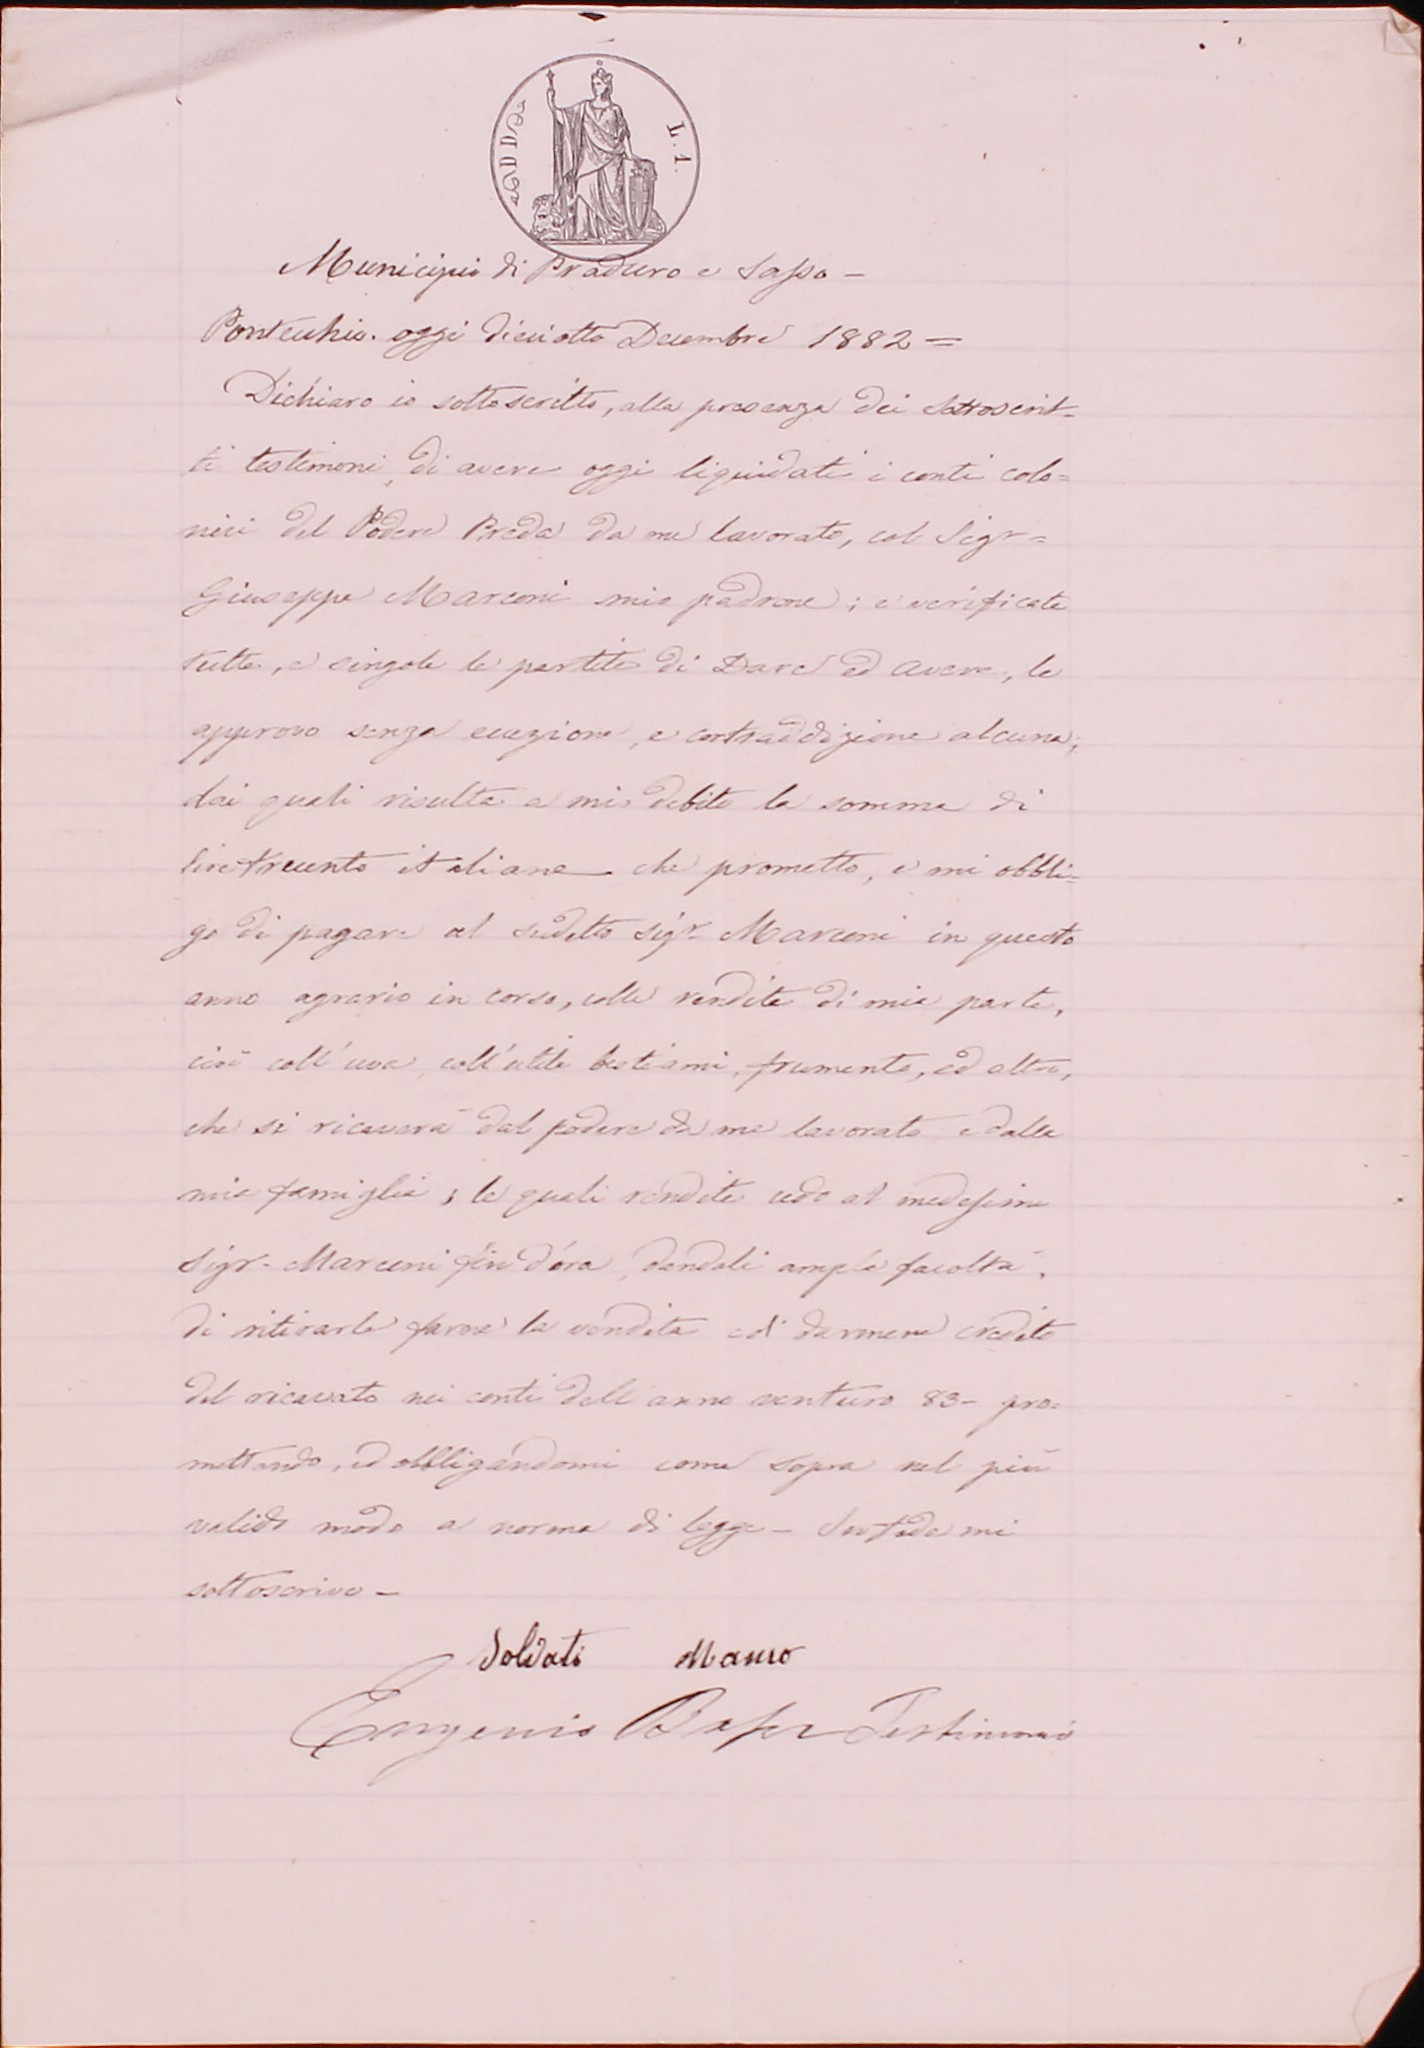 L. 1.
Municipio di Praduro e Sasso –
Pontecchio. oggi dieciotto Decembre 1882 =
Dichiaro io sottoscritto, alla presenza dei sottoscrit=
ti testimoni, di avere oggi liquidati i conti colo=
nici del Podere Preda da me lavorato, col Sigr =
Giuseppe Marconi mio padrone; e verificate
tutte, e singole le partite di Dare ed avere, le
approvo senza eccezione, e contraddizione alcuna;
dai quali risulta a mio debito la somma di
lire trecento italiane che prometto, e mi obbli=
go di pagare al sudetto sigr Marconi in questo
anno agrario in corso, colle rendite di mia parte,
cioè coll'uva, coll'utile bestiami, frumento, ed altro,
che si ricaverà dal podere da me lavorato e dalla
mia famiglia; le quali rendite cedo al medesimo
Sigr. Marconi fin d'ora, dandoli ampla facoltà,
di ritirarle farne la vendita ed darmene credito
del ricavato nei conti dell'anno venturo 83 – pro=
mettendo, ed obbligandomi come sopra nel più
valido modo a norma di legge – In fede mi
sottoscrivo –
Soldati Mauro
Eugenio Testimonio